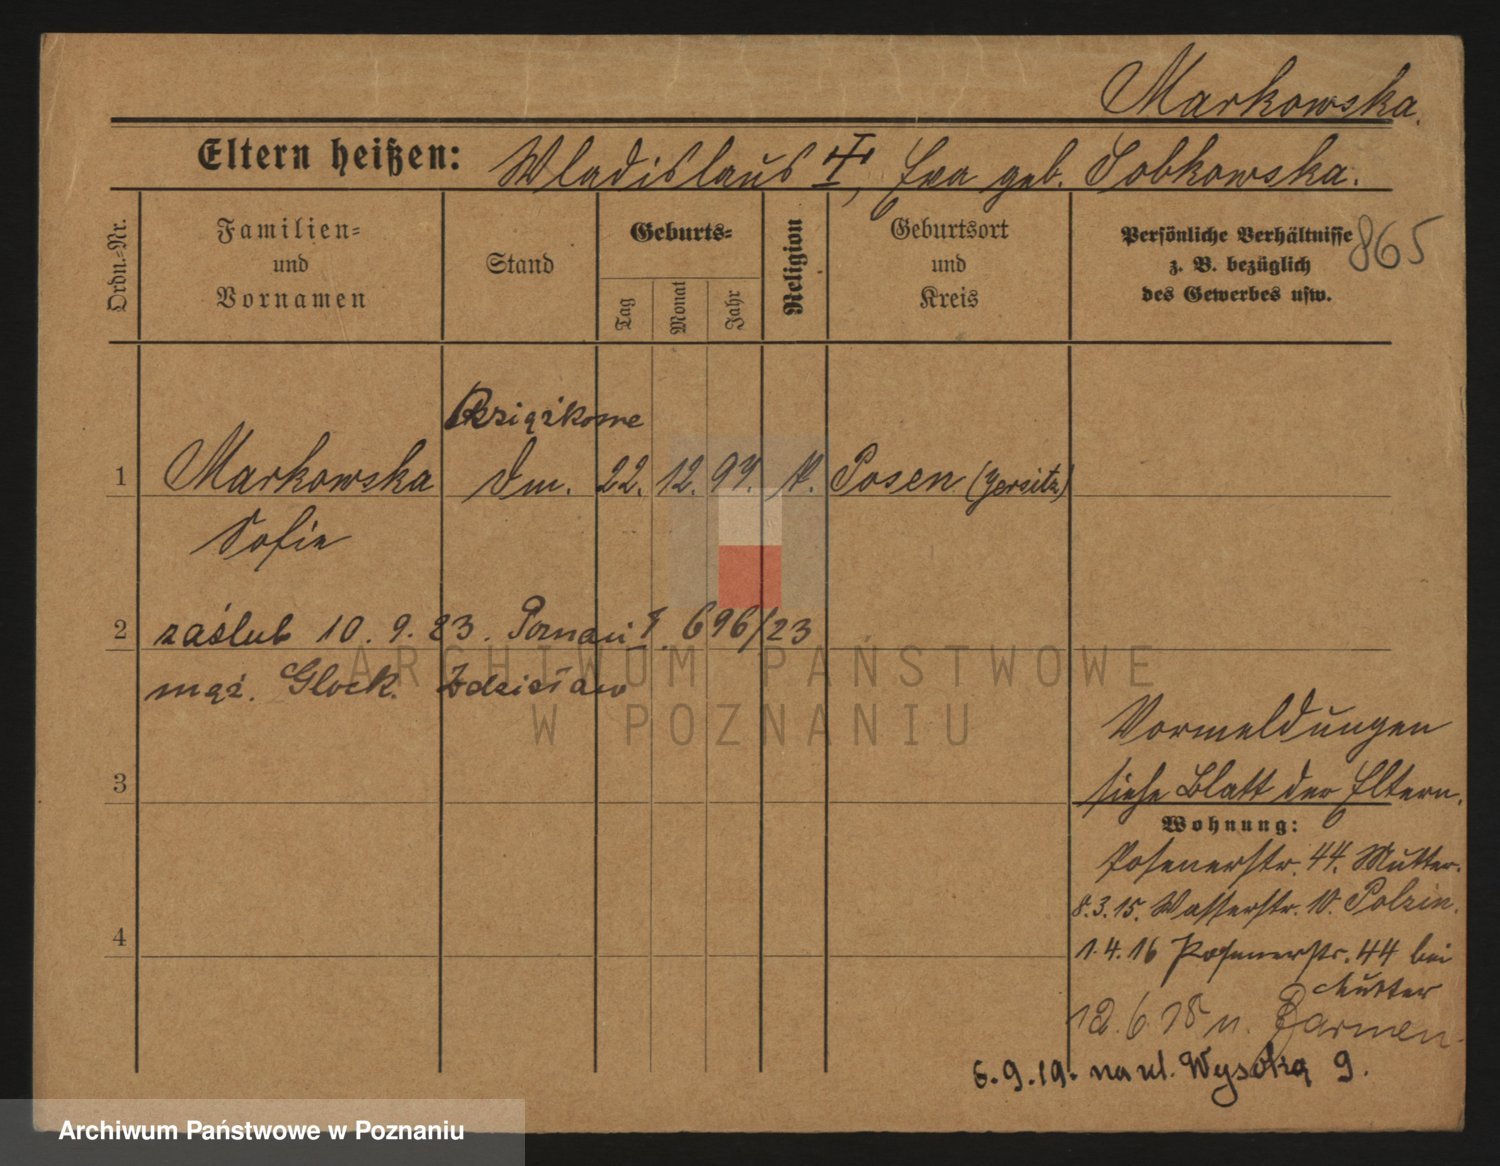 Markowska.
Eltern heißen: Wladislaus ‡, Eva geb. Sobkowska.
Ordn.-Nr.
Familien-
und
Vornamen
Stand
Geburts-
Tag
Monat
Jahr
Religion
Geburtsort
und
Kreis
Persönliche Verhältnisse
z. B. bezüglich
des Gewerbes usw.
865
książkowe
1 Markowska Dm. 22. 12. 97. k. Posen (Jersitz)
Sofie
2 zaślub 10. 9. 23. Poznań I. 696/23
mąż. Glock. Zdzisław
3
4
Vormeldungen
siehe Blatt der Eltern.
Wohnung:
Posenerstr. 44. Mutter.
8.3.15. Wasserstr. 10. Polzin.
1.4.16 Posenerstr. 44 bei
Mutter
12.6.18 n. Barmen.
6.9.19. na ul. Wysoką 9.
ARCHIWUM PAŃSTWOWE
W POZNANIU
Archiwum Państwowe w Poznaniu